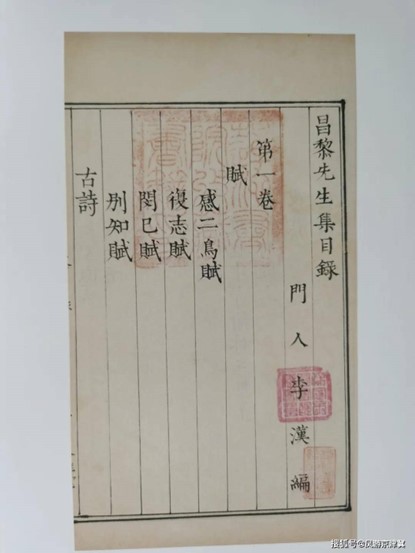 昌黎先生集目録
門人李漢編
第一卷
賦
感二鳥賦
復志賦
閔已賦
別知賦
古詩